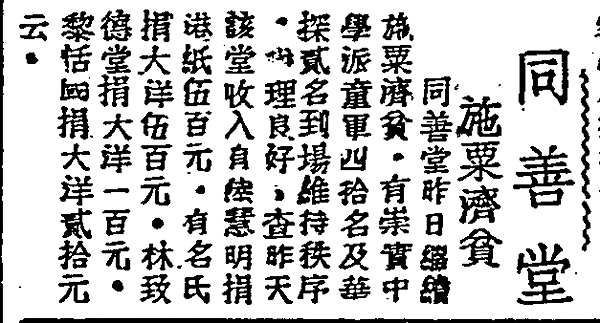 同善堂
施粟濟貧
同善堂昨日繼續
施粟濟貧。有崇實中
學派童軍四拾名及華
探貳名到場維持秩序
。辦理良好。查昨天
該堂收入自 慧明捐
港紙伍百元。有名氏
捐大洋伍百元。林致
德堂捐大洋一百元。
黎恬 捐大洋貳拾元
云。